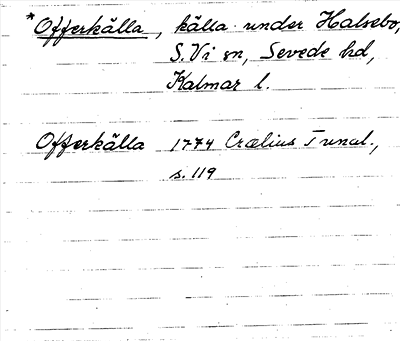 *Offerkälla, källa under Halsebo,
S. Vi sn, Sevede hd,
Kalmar l.
Offerkälla 1774 Crælius Tunal.,
s. 119